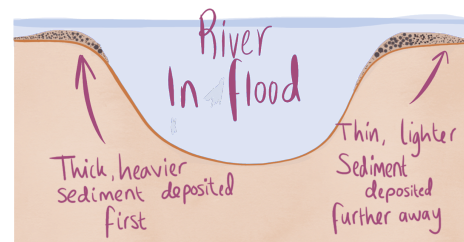 River
In flood
Thick, heavier
sediment deposited
first
Thin, lighter
Sediment
deposited
further away